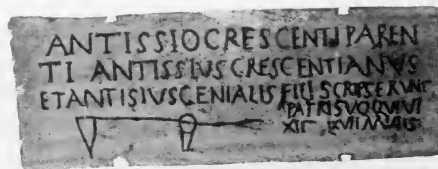 ANTISSIO CRESCENTI PAREN
TI ANTISSIUS CRESCENTIANVS
ET ANTISIVS GENIALIS FILI SCRIPSERUNT
PATRI SVO QVI VI
XIT